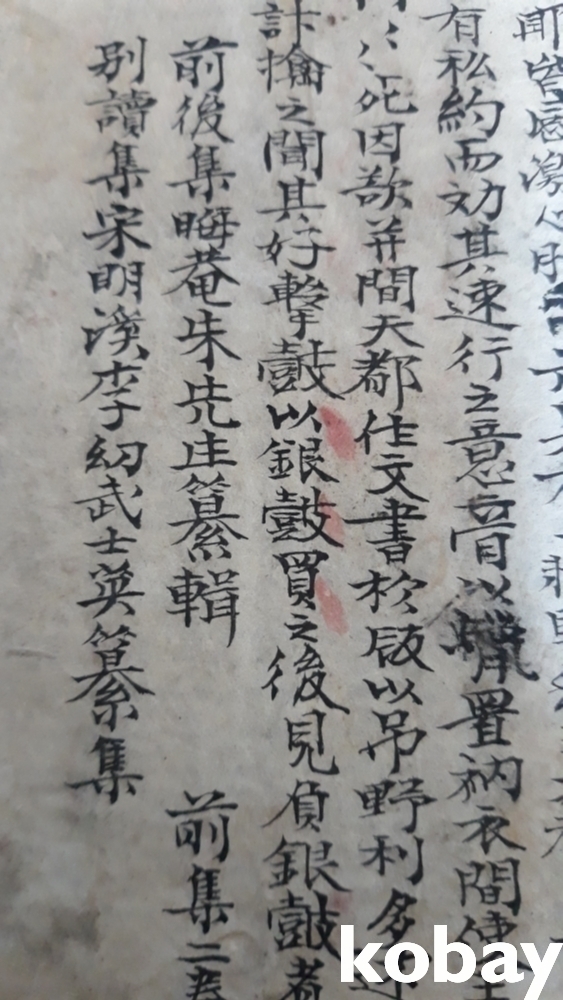 耶皆感激心
有私約而効其速行之意 膏以蠟置衲衣間使
死因欲并間天都作文書於版以吊野利多述
計擒之聞其好擊鼓以銀鼓買之後見負銀鼓者
前後集晦菴朱先生纂輯 前集二卷
別讀集宋明漢李幼武士英纂集
kobay